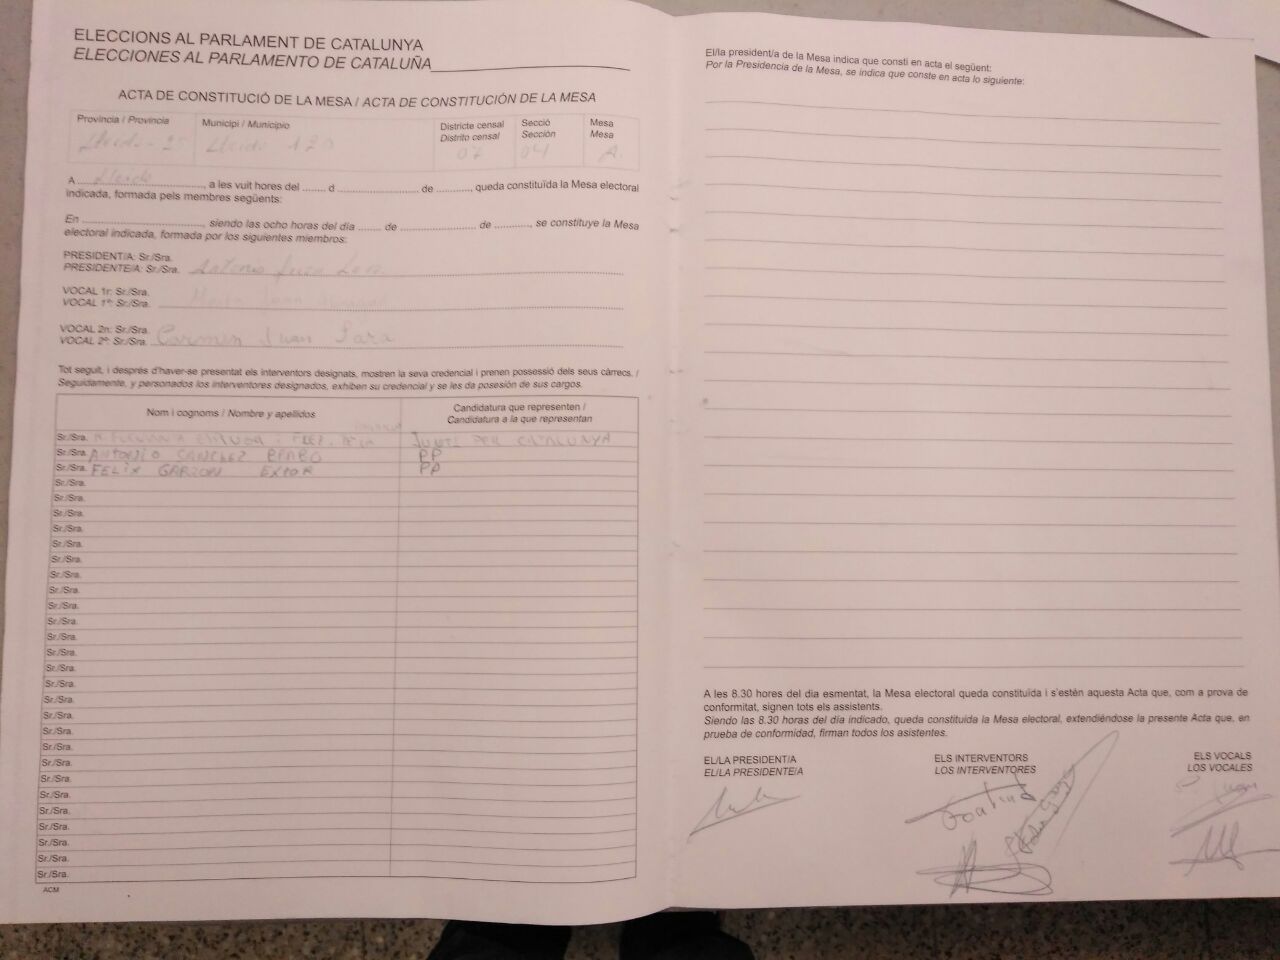 ELECCIONS AL PARLAMENT DE CATALUNYA
ELECCIONES AL PARLAMENTO DE CATALUÑA
ACTA DE CONSTITUCIÓ DE LA MESA / ACTA DE CONSTITUCIÓN DE LA MESA
Província / Provincia Municipi / Municipio Districte censal Secció Mesa
Distrito censal Sección Mesa
Lleida - 25 Lleida 120 07 04 A.
A Lleida, a les vuit hores del ........ d ........................ de ..........., queda constituïda la Mesa electoral
indicada, formada pels membres següents:
En ................................, siendo las ocho horas del día ....... de ...................... de ..........., se constituye la Mesa
electoral indicada, formada por los siguientes miembros:
PRESIDENT/A: Sr./Sra.
PRESIDENTE/A: Sr./Sra. Antonio
VOCAL 1r: Sr./Sra.
VOCAL 1º: Sr./Sra. Juan
VOCAL 2n: Sr./Sra.
VOCAL 2º: Sr./Sra. Carmen Juan
Tot seguit, i després d'haver-se presentat els interventors designats, mostren la seva credencial i prenen possessió dels seus càrrecs. /
Seguidamente, y personados los interventores designados, exhiben su credencial y se les da posesión de sus cargos.
Nom i cognoms / Nombre y apellidos Candidatura que representen /
Candidatura a la que representan
Sr./Sra. JUNTS PER CATALUNYA
Sr./Sra. ANTONIO SANCHEZ PP
Sr./Sra. FELIX GARZON PP
Sr./Sra.
Sr./Sra.
Sr./Sra.
Sr./Sra.
Sr./Sra.
Sr./Sra.
Sr./Sra.
Sr./Sra.
Sr./Sra.
Sr./Sra.
Sr./Sra.
Sr./Sra.
Sr./Sra.
Sr./Sra.
Sr./Sra.
Sr./Sra.
Sr./Sra.
Sr./Sra.
Sr./Sra.
Sr./Sra.
Sr./Sra.
Sr./Sra.
Sr./Sra.
Sr./Sra.
Sr./Sra.
Sr./Sra.
ACM
El/la president/a de la Mesa indica que consti en acta el següent:
Por la Presidencia de la Mesa, se indica que conste en acta lo siguiente:
A les 8.30 hores del dia esmentat, la Mesa electoral queda constituïda i s'estén aquesta Acta que, com a prova de
conformitat, signen tots els assistents.
Siendo las 8.30 horas del día indicado, queda constituida la Mesa electoral, extendiéndose la presente Acta que, en
prueba de conformidad, firman todos los asistentes.
EL/LA PRESIDENT/A ELS INTERVENTORS ELS VOCALS
EL/LA PRESIDENTE/A LOS INTERVENTORES LOS VOCALES